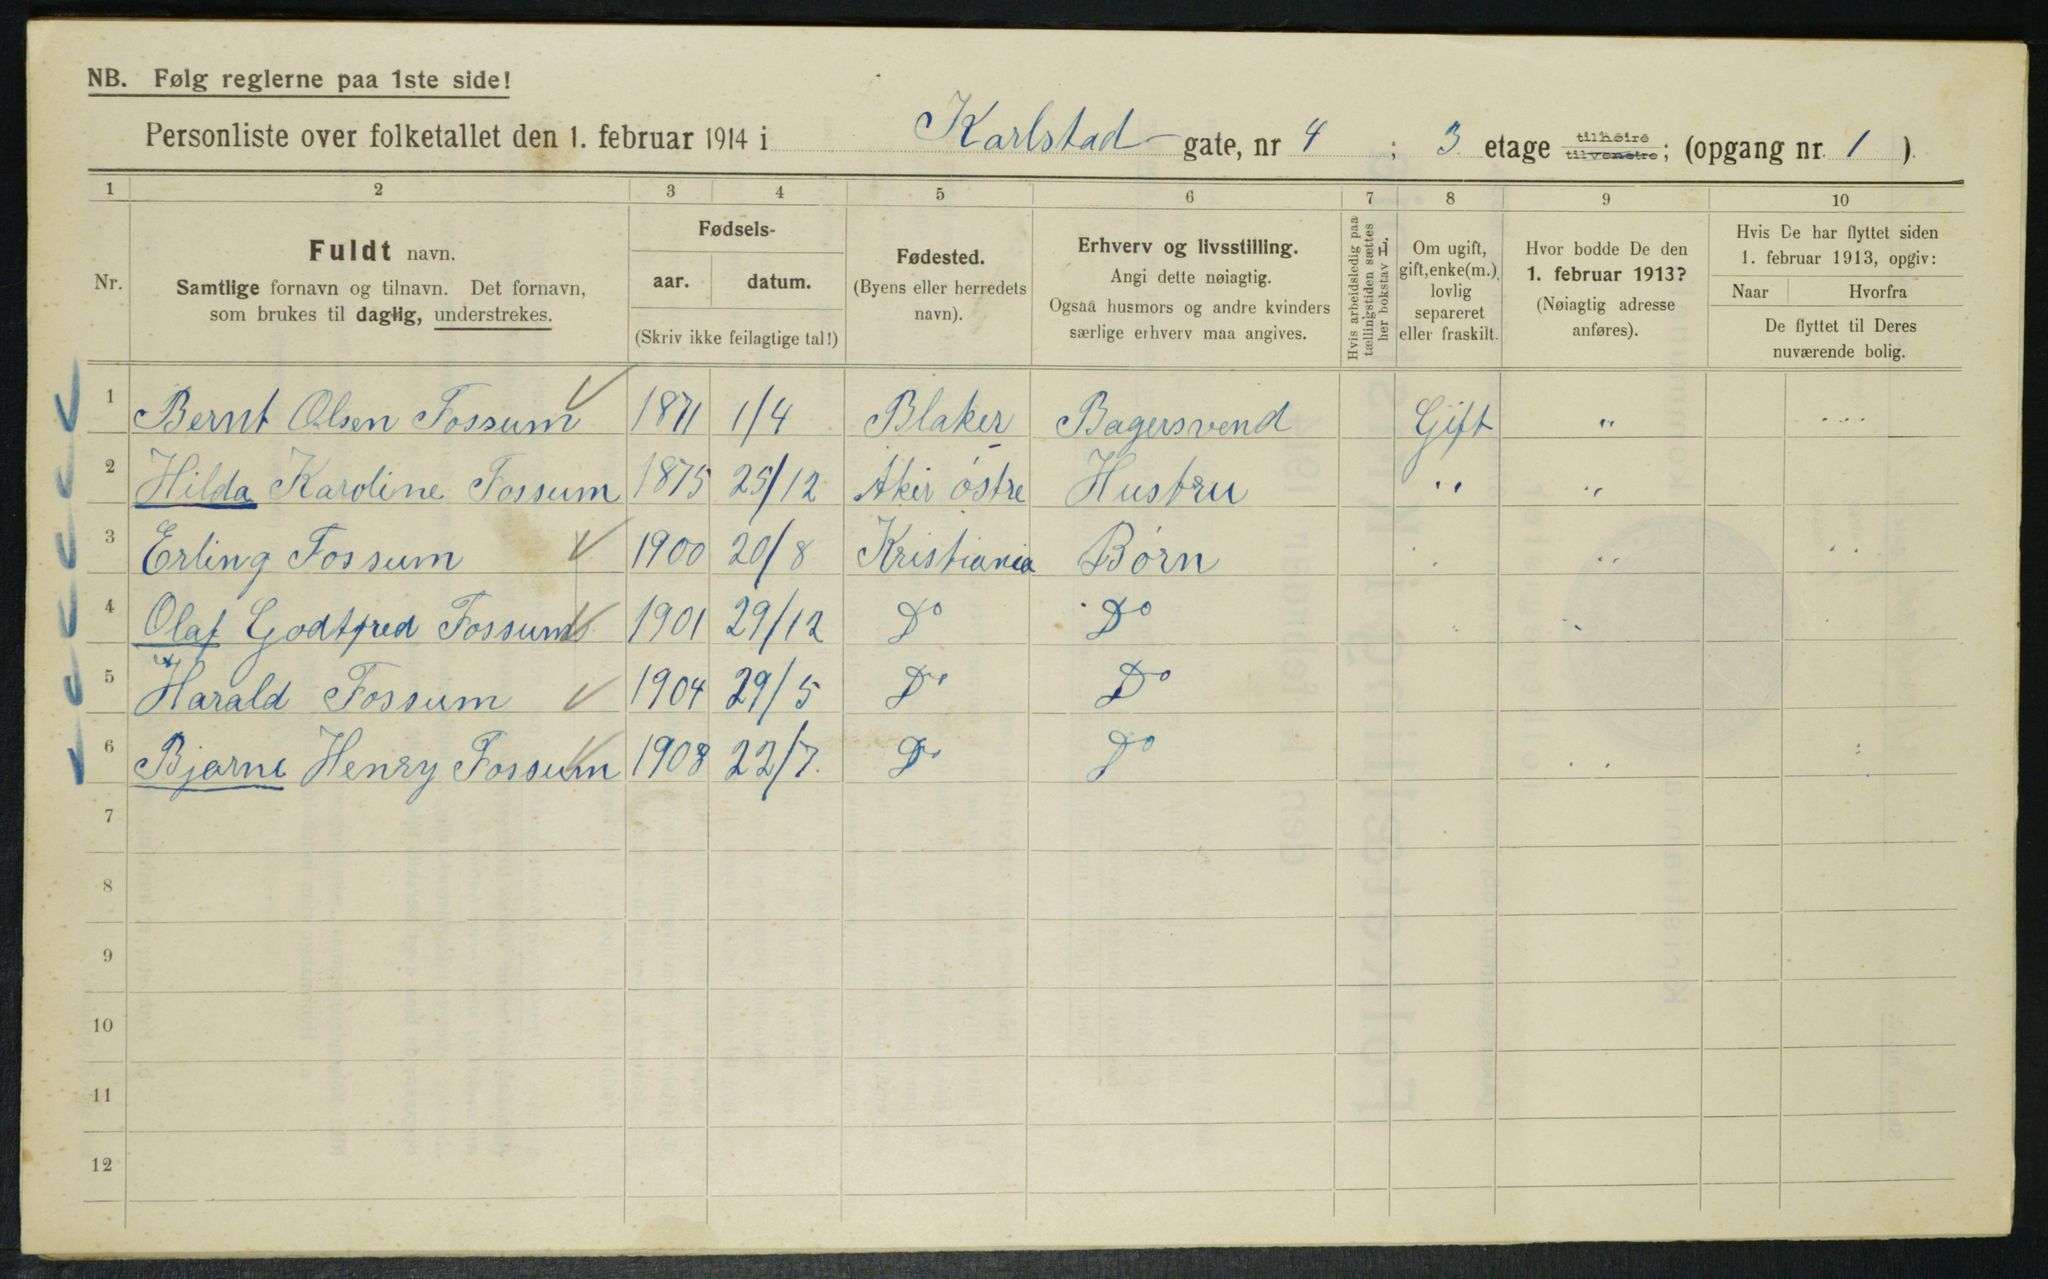 NB. Følg reglerne paa 1ste side!
Personliste over folketallet den 1. februar 1914 i Karlstad gate, nr 4 ; 3 etage tilhøire tilvenstre; (opgang nr. 1 ).
1 2 3 4 5 6 7 8 9 10
Nr.
Fuldt navn.
Samtlige fornavn og tilnavn. Det fornavn,
som brukes til daglig, understrekes.
Fødsels-
aar. datum.
(Skriv ikke feilagtige tal!)
Fødested.
(Byens eller herredets
navn).
Erhverv og livsstilling.
Angi dette nøiagtig.
Ogsaa husmors og andre kvinders
særlige erhverv maa angives.
Hvis arbeidsledig paa
tællingstiden sættes
her bokstav L.
Om ugift,
gift, enke(m.),
lovlig
separeret
eller fraskilt.
Hvor bodde De den
1. februar 1913?
(Nøiagtig adresse
anføres).
Hvis De har flyttet siden
1. februar 1913, opgiv:
Naar Hvorfra
De flyttet til Deres
nuværende bolig.
1 Bernt Olsen Fossum 1871 1/4 Blaker Bagersvend Gift " "
2 Hilda Karoline Fossum 1875 25/12 Aker østre Hustru " "
3 Erling Fossum 1900 20/8 Kristiania Børn " "
4 Olaf Godtfred Fossum 1901 29/12 Do Do "
5 Harald Fossum 1904 29/5 Do Do
6 Bjarne Henry Fossum 1908 22/7. Do Do " "
7
8
9
10
11
12